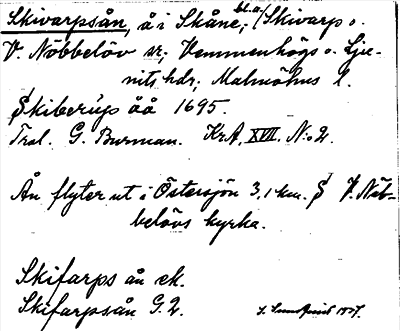 Skivarpsån, å i Skåne, bl.a. i Skivarps o.
V. Nöbbelöv sr; Vemmenhögs o. Lju-
nits hdr; Malmöhus l.
Skiberups åå 1695.
Trol. G. Burman. KrA. XVII. No 2.
Ån flyter ut i Östersjön 3,1 km. S V. Nöb-
belövs kyrka.
Skifarps ån ek.
Skifarpsån G. 2.